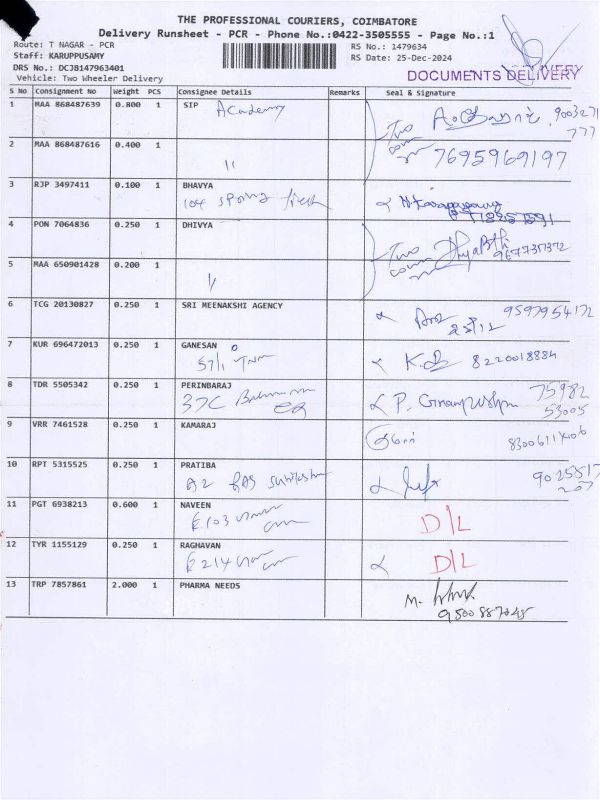 THE PROFESSIONAL COURIERS, COIMBATORE
Delivery Runsheet - PCR - Phone No.:0422-3505555 - Page No.:1
Route: T NAGAR - PCR
RS No.: 1479634
Staff: KARUPPUSAMY
RS Date: 25-Dec-2024
DRS No.: DCJB147963401
DOCUMENTS DELIVERY
Vehicle: Two Wheeler Delivery
S No Consignment No Weight PCS Consignee Details Remarks Seal & Signature
1 MAA 868487639 0.800 1 SIP Academy
2 MAA 868487616 0.400 1 " 7695969197
3 RJP 3497411 0.100 1 BHAVYA
104 spring field
4 PON 7064836 0.250 1 DHIVYA Two
5 MAA 650901428 0.200 1 "
6 TCG 20130827 0.250 1 SRI MEENAKSHI AGENCY 9597954172
25/12
7 KUR 696472013 0.250 1 GANESAN K.B 8220018884
57/1
8 TDR 5505342 0.250 1 PERINBARAJ 75982
37C P. 53005
9 VRR 7461528 0.250 1 KAMARAJ
10 RPT 5315525 0.250 1 PRATIBA
A2
11 PGT 6938213 0.600 1 NAVEEN D/L
E103
12 TYR 1155129 0.250 1 RAGHAVAN D/L
E214
13 TRP 7857861 2.000 1 PHARMA NEEDS M.